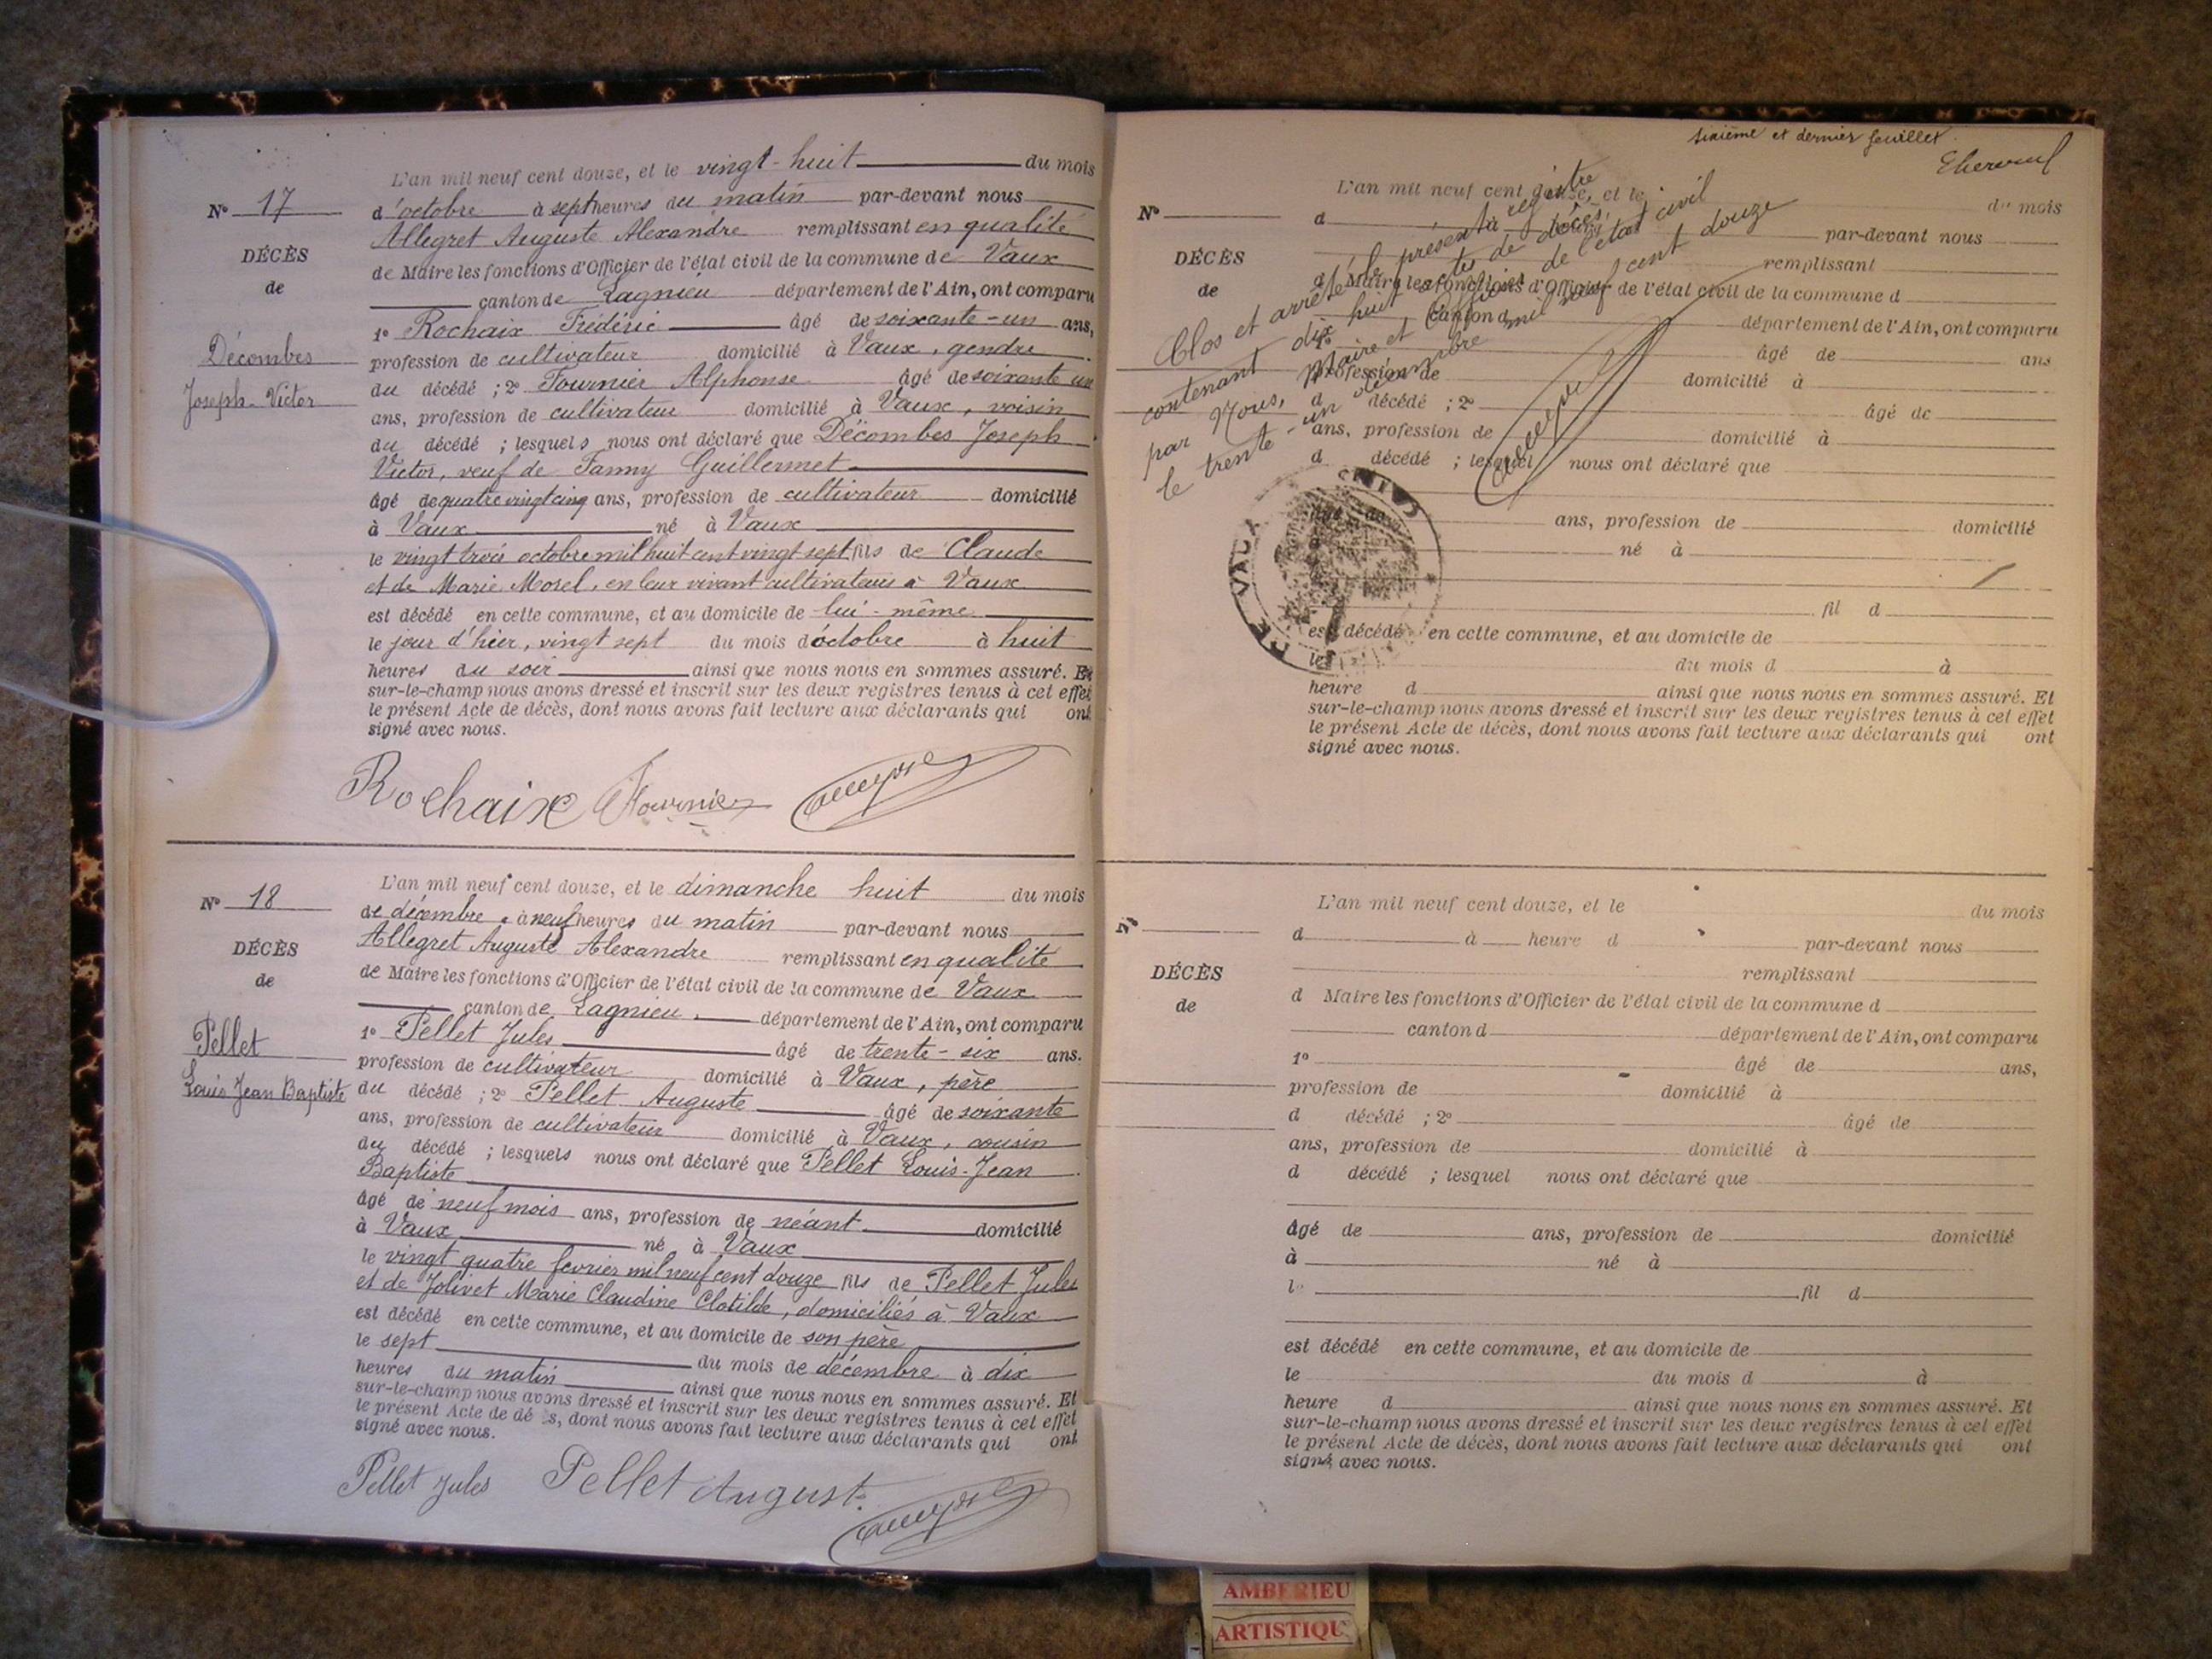 N° 17
DÉCÈS
de
Décombes
Joseph-Victor
L'an mil neuf cent douze, et le vingt-huit du mois
d'octobre à sept heures du matin par-devant nous
Allegret Auguste Alexandre remplissant en qualité
de Maire les fonctions d'Officier de l'état civil de la commune de Vaux
canton de Lagnieu département de l'Ain, ont comparu
1° Rochaix Frédéric âgé de soixante-un ans,
profession de cultivateur domicilié à Vaux, gendre
du décédé ; 2° Fournier Alphonse âgé de soixante un
ans, profession de cultivateur domicilié à Vaux, voisin
du décédé ; lesquels nous ont déclaré que Décombes Joseph
Victor, veuf de Fanny Guillermet
âgé de quatre vingt cinq ans, profession de cultivateur domicilié
à Vaux né à Vaux
le vingt trois octobre mil huit cent vingt sept fils de Claude
et de Marie Morel, en leur vivant cultivateurs à Vaux
est décédé en cette commune, et au domicile de lui-même
le jour d'hier, vingt sept du mois d'octobre à huit
heures du soir ainsi que nous nous en sommes assuré. Et
sur-le-champ nous avons dressé et inscrit sur les deux registres tenus à cet effet
le présent Acte de décès, dont nous avons fait lecture aux déclarants qui ont
signé avec nous.
Rochaix Fournier
N° 18
DÉCÈS
de
Pellet
Louis Jean Baptiste
L'an mil neuf cent douze, et le dimanche huit du mois
de décembre à neuf heures du matin par-devant nous
Allegret Auguste Alexandre remplissant en qualité
de Maire les fonctions d'Officier de l'état civil de la commune de Vaux
canton de Lagnieu département de l'Ain, ont comparu
1° Pellet Jules âgé de trente-six ans.
profession de cultivateur domicilié à Vaux, père
du décédé ; 2° Pellet Auguste âgé de soixante
ans, profession de cultivateur domicilié à Vaux, cousin
du décédé ; lesquels nous ont déclaré que Pellet Louis-Jean
Baptiste
âgé de neuf mois ans, profession de néant domicilié
à Vaux né à Vaux
le vingt quatre fevrier mil neuf cent douze fils de Pellet Jules
et de Jolivet Marie Claudine Clotilde, domiciliés à Vaux
est décédé en cette commune, et au domicile de son père
le sept du mois de décembre à dix
heures du matin ainsi que nous nous en sommes assuré. Et
sur-le-champ nous avons dressé et inscrit sur les deux registres tenus à cet effet
le présent Acte de dé s, dont nous avons fait lecture aux déclarants qui ont
signé avec nous.
Pellet Jules Pellet August.
sixième et dernier feuillet
Clos et arrêté le présent registre
contenant dix huit actes de décès,
par Nous, Maire et Officier de l'état civil
le trente-un décembre mil neuf cent douze
N°
DÉCÈS
de
L'an mil neuf cent douze, et le du mois
d à par-devant nous
remplissant
d Maire les fonctions d'Officier de l'état civil de la commune d
canton d département de l'Ain, ont comparu
1° âgé de ans
profession de domicilié à
d décédé ; 2° âgé de
ans, profession de domicilié à
d décédé ; lesquel nous ont déclaré que
âgé de ans, profession de domicilié
né à
fil d
est décédé en cette commune, et au domicile de
le du mois d à
heure d ainsi que nous nous en sommes assuré. Et
sur-le-champ nous avons dressé et inscrit sur les deux registres tenus à cet effet
le présent Acte de décès, dont nous avons fait lecture aux déclarants qui ont
signé avec nous.
DE VAUX
N°
DÉCÈS
de
L'an mil neuf cent douze, et le du mois
d à heure d par-devant nous
remplissant
d Maire les fonctions d'Officier de l'état civil de la commune d
canton d département de l'Ain, ont comparu
1° âgé de ans,
profession de domicilié à
d décédé ; 2° âgé de
ans, profession de domicilié à
d décédé ; lesquel nous ont déclaré que
âgé de ans, profession de domicilié
à né à
l fil d
est décédé en cette commune, et au domicile de
le du mois d à
heure d ainsi que nous nous en sommes assuré. Et
sur-le-champ nous avons dressé et inscrit sur les deux registres tenus à cet effet
le présent Acte de décès, dont nous avons fait lecture aux déclarants qui ont
signé avec nous.
AMBERIEU
ARTISTIQU